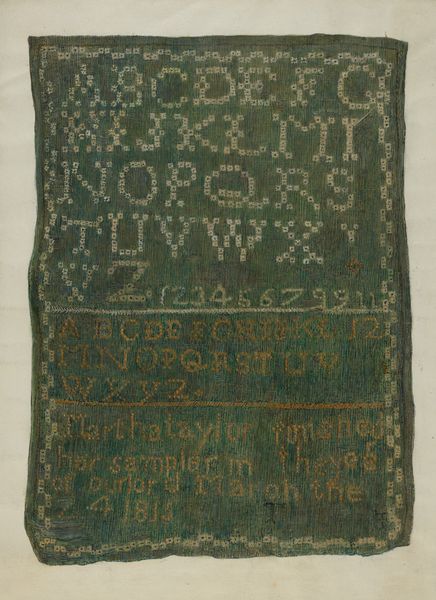 A B C D E F G
K L M
N O P Q R S
T U V W X Y
Z 1 2 3 4 5 6 7 9 9 11
A B C D E F G H I K L 12
N O P Q R S T U V
W X Y Z
Martha taylor finished
Her sampler in the yea
of our lord March the
4 181